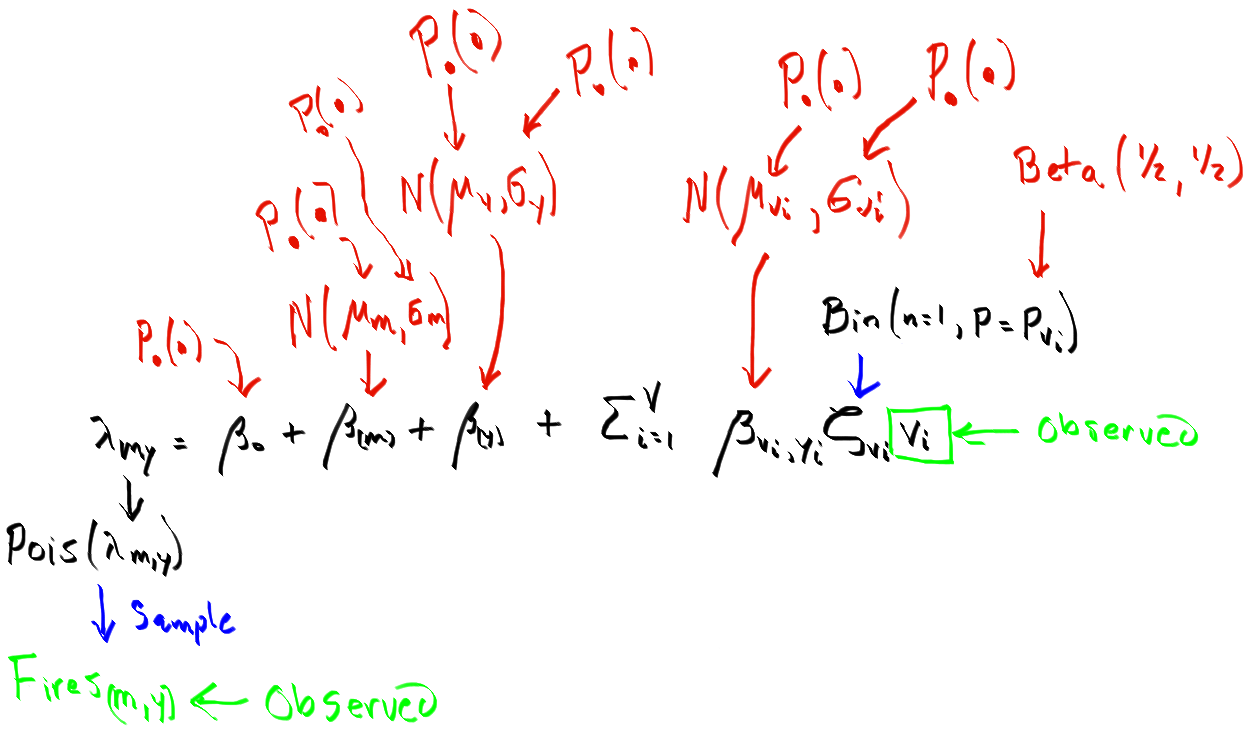 P.(.) P.(.) P.(.) P.(.)
P.(.)
N(μy, σy) N(μvi, σvi) Beta(1/2, 1/2)
P.(.)
N(μm, σm) Bin(n=1, P=Pvi)
P.(.)
λmy = β0 + β(m) + β(y) + Σ^V_{i=1} βvi,yi ζvi Vi ← Observed
Pois(λm,y)
Sample
Fires(m,y) ← Observed